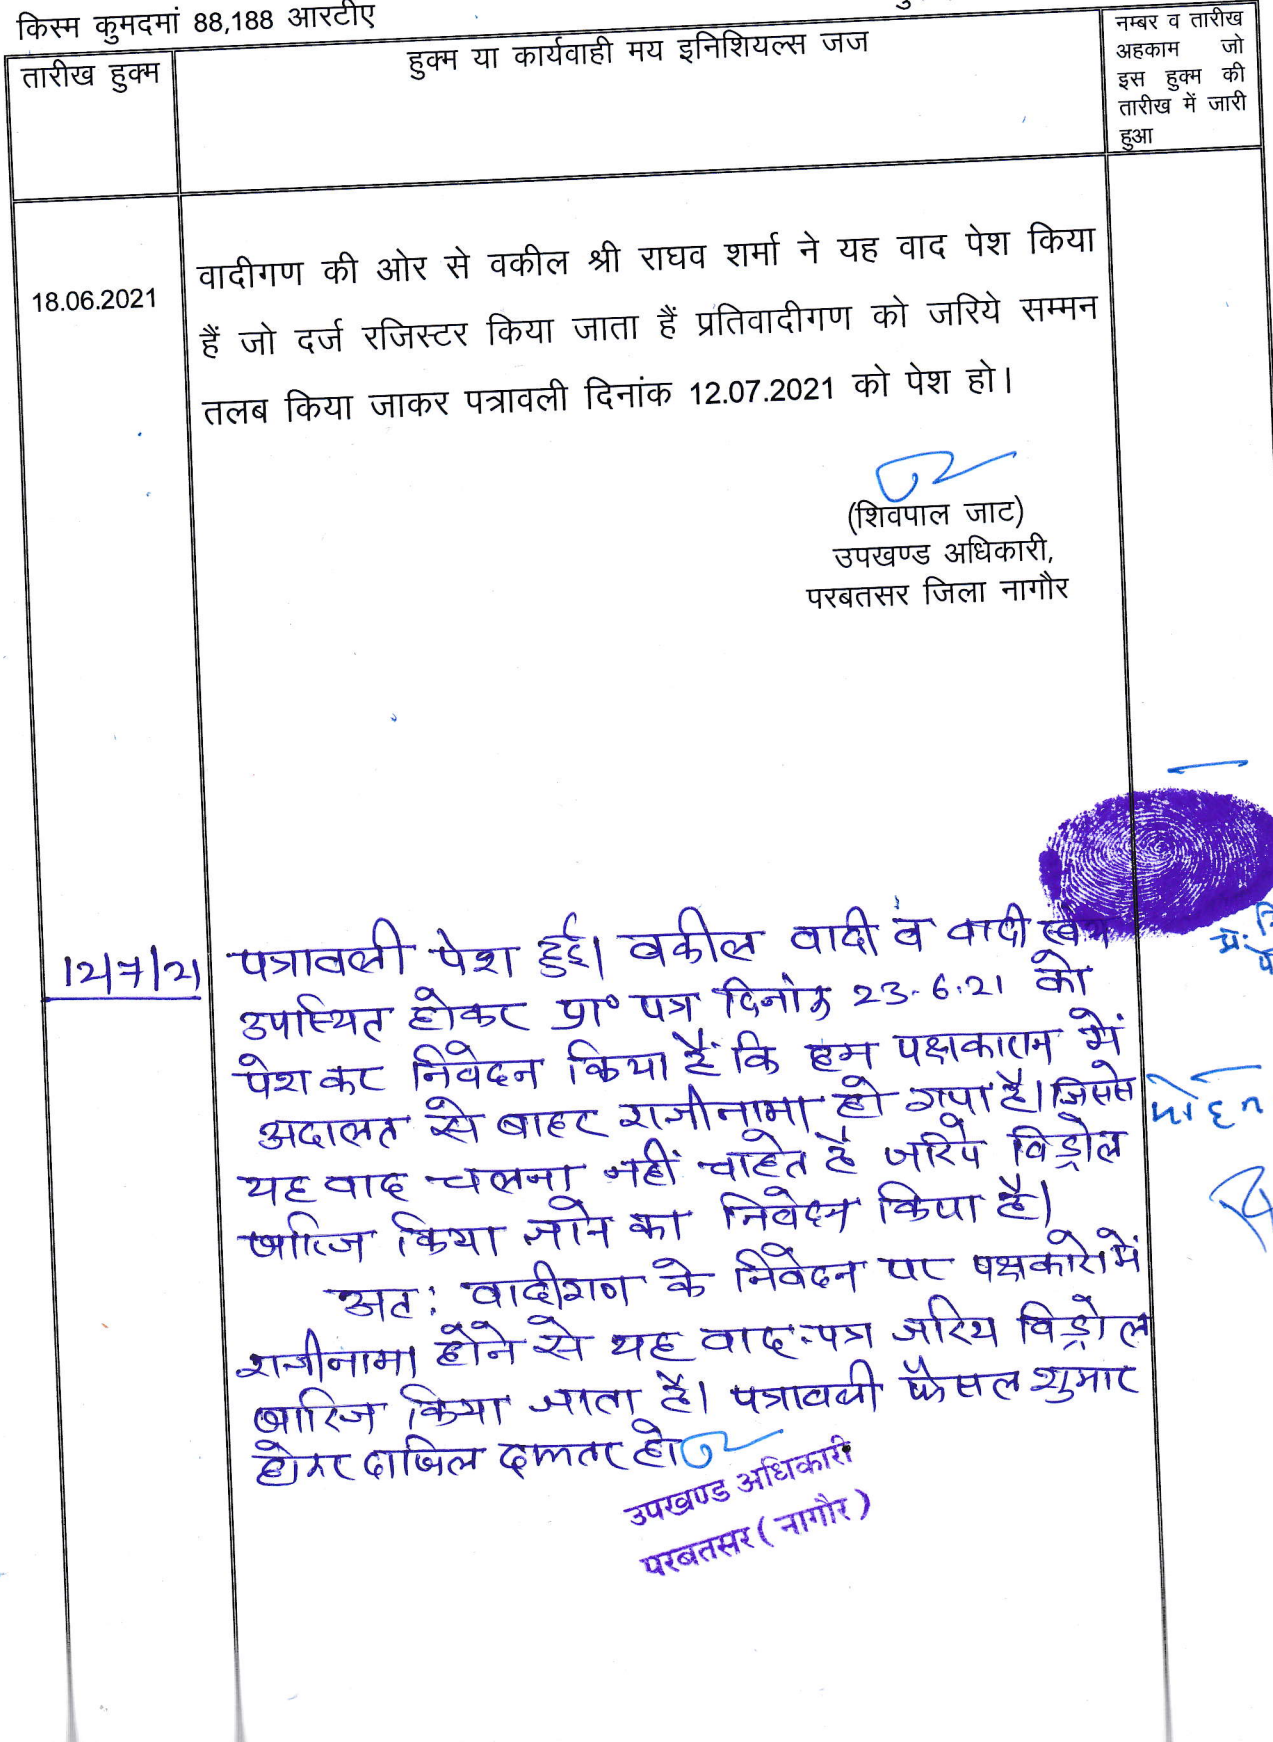 किस्म कुमदमां 88,188 आरटीए
तारीख हुक्म
हुक्म या कार्यवाही मय इनिशियल्स जज
नम्बर व तारीख
अहकाम जो
इस हुक्म की
तारीख में जारी
हुआ
18.06.2021
वादीगण की ओर से वकील श्री राघव शर्मा ने यह वाद पेश किया
हैं जो दर्ज रजिस्टर किया जाता हैं प्रतिवादीगण को जरिये सम्मन
तलब किया जाकर पत्रावली दिनांक 12.07.2021 को पेश हो।
(शिवपाल जाट)
उपखण्ड अधिकारी,
परबतसर जिला नागौर
12/7/21
पत्रावली पेश हुई। वकील वादी व वादी स्वयं
उपस्थित होकर प्रा० पत्र दिनांक 23.6.21 को
पेश कर निवेदन किया हैं कि हम पक्षकारान में
अदालत से बाहर राजीनामा हो गया है। जिससे
यह वाद चलना नहीं चाहते हैं जरिये विड्रोल
खारिज किया जाने का निवेदन किया है।
अत: वादीगण के निवेदन पर पक्षकारो में
राजीनामा होने से यह वाद-पत्र जरिये विड्रोल
खारिज किया जाता है। पत्रावली फैसल शुमार
होकर दाखिल दफ्तर हो
उपखण्ड अधिकारी
परबतसर (नागौर)
मोहन